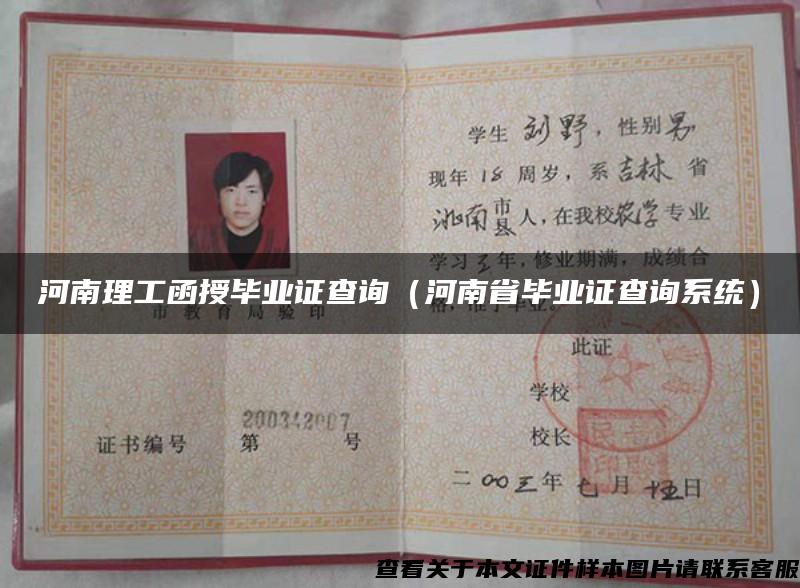 学生 刘野，性别 男
现年 18 周岁，系 吉林 省
洮南 市县 人，在我校 农学 专业
学习 三 年，修业期满，成绩合
格，准予毕业。
河南理工函授毕业证查询（河南省毕业证查询系统）
市教育局验印
此证
学校
校长
二〇〇三年 七 月 十五 日
证书编号 第 200342007 号
查看关于本文证件样本图片请联系客服